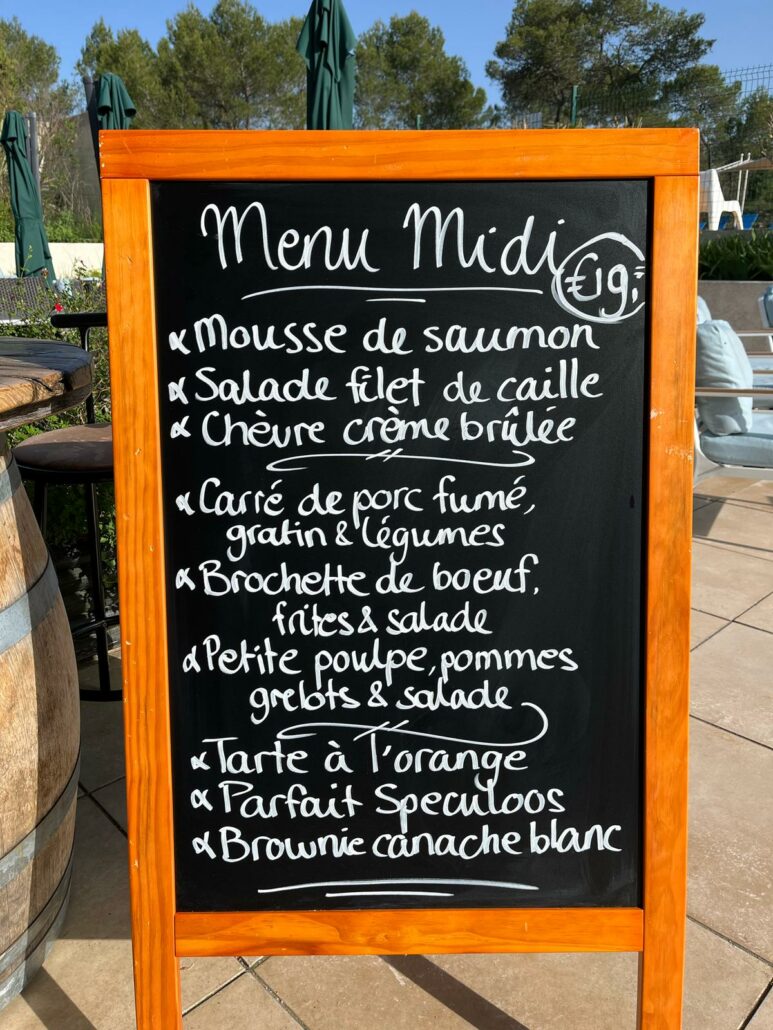 Menu Midi
€19,=
Mousse de saumon
Salade filet de caille
Chèvre crème brûlée
Carré de porc fumé,
gratin & légumes
Brochette de boeuf,
frites & salade
Petite poulpe, pommes
grelots & salade
Tarte à l'orange
Parfait Speculoos
Brownie canache blanc